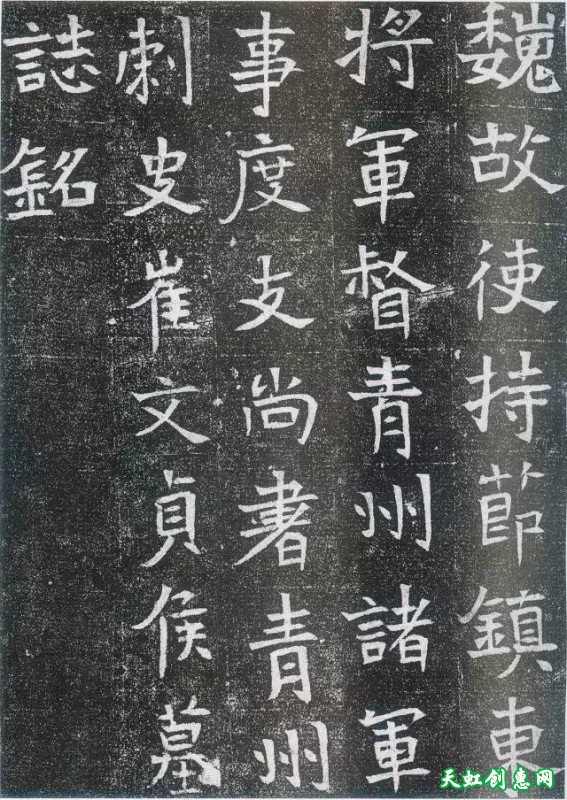 魏故使持節鎮東
将軍督青州諸軍
事度支尚書青州
刺史崔文貞侯墓
誌銘
天虹创惠网